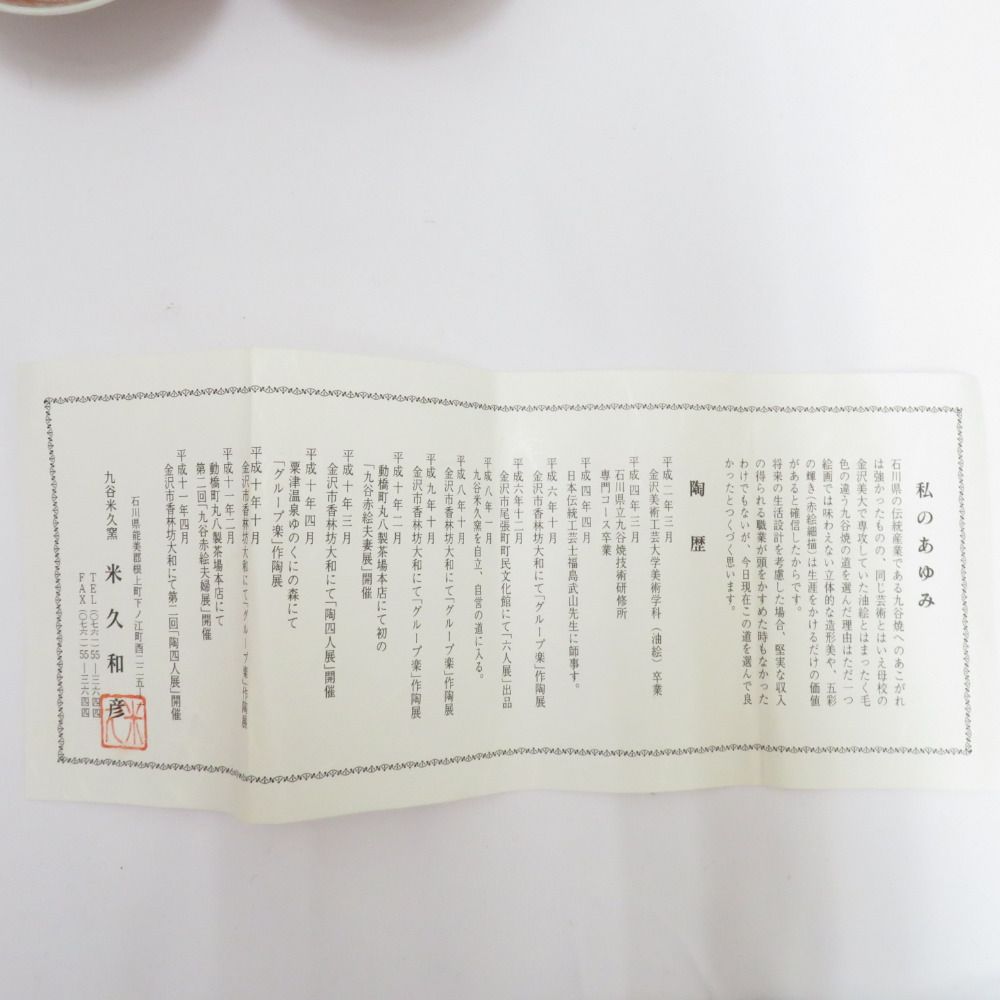 私のあゆみ
石川県の伝統産業である九谷焼へのあこがれ
は強かったものの、同じ芸術とはいえ母校の
金沢美大で専攻していた油絵とはまったく毛
色の違う九谷焼の道を選んだ理由はただ一つ
絵画では味わえない立体的な造形美や、五彩
の輝き(赤絵細描)は生涯をかけるだけの価値
があると確信したからです。
将来の生活設計を考慮した場合、堅実な収入
の得られる職業が頭をかすめた時もなかった
わけでもないが、今日現在この道を選んで良
かったとつくづく思います。
陶歴
平成二年三月
金沢美術工芸大学美術学科(油絵)卒業
平成四年三月
石川県立九谷焼技術研修所
専門コース卒業
平成四年四月
日本伝統工芸士福島武山先生に師事す。
平成六年十月
金沢市香林坊大和にて「グループ楽」作陶展
平成六年十二月
金沢市尾張町町民文化館にて「六人展」出品
平成八年一月
九谷米久窯を自立、自営の道に入る。
平成八年十月
金沢市香林坊大和にて「グループ楽」作陶展
平成九年十月
金沢市香林坊大和にて「グループ楽」作陶展
平成十年二月
動橋町丸八製茶場本店にて初の
「九谷赤絵夫妻展」開催
平成十年三月
金沢市香林坊大和にて「陶四人展」開催
平成十年四月
粟津温泉ゆのくにの森にて
「グループ楽」作陶展
平成十年十月
金沢市香林坊大和にて「グループ楽」作陶展
平成十一年二月
動橋町丸八製茶場本店にて
第二回「九谷赤絵夫婦展」開催
平成十一年四月
金沢市香林坊大和にて第二回「陶四人展」開催
石川県能美郡根上町下ノ江町西二二五
九谷米久窯 米久和彦
TEL(〇七六一)55―三六四四
FAX(〇七六一)55―三六四四